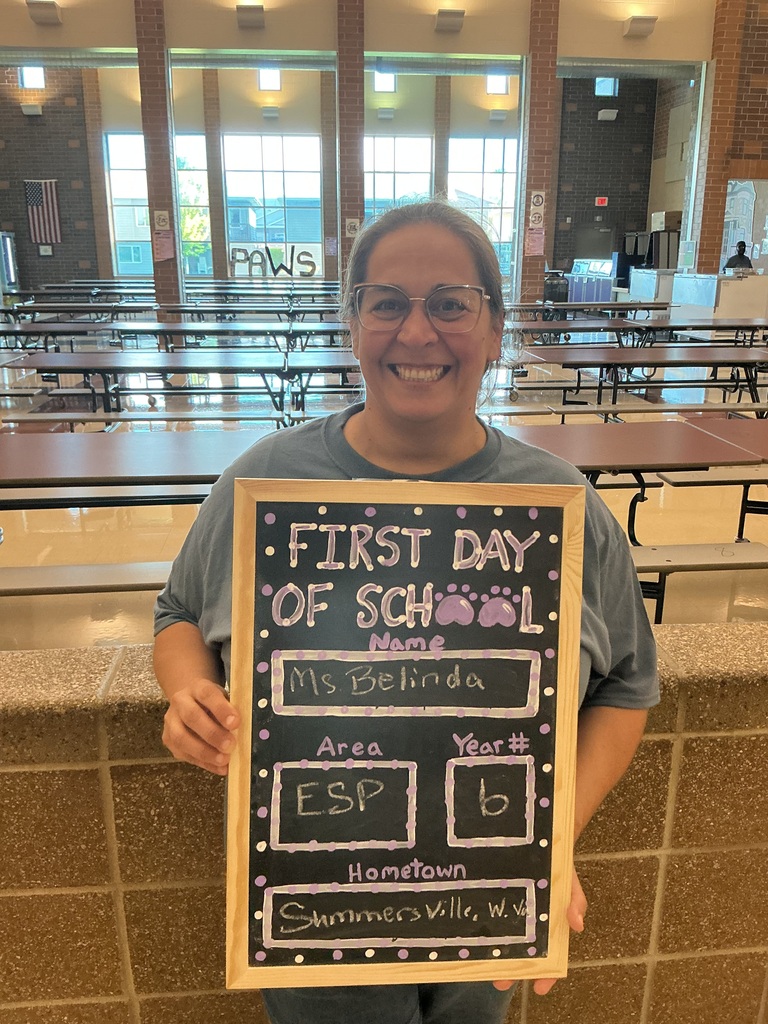 PAWS
FIRST DAY
OF SCHOOL
Name
Ms Belinda
Area
Year #
ESP
6
Hometown
Summersville, W. Va
8